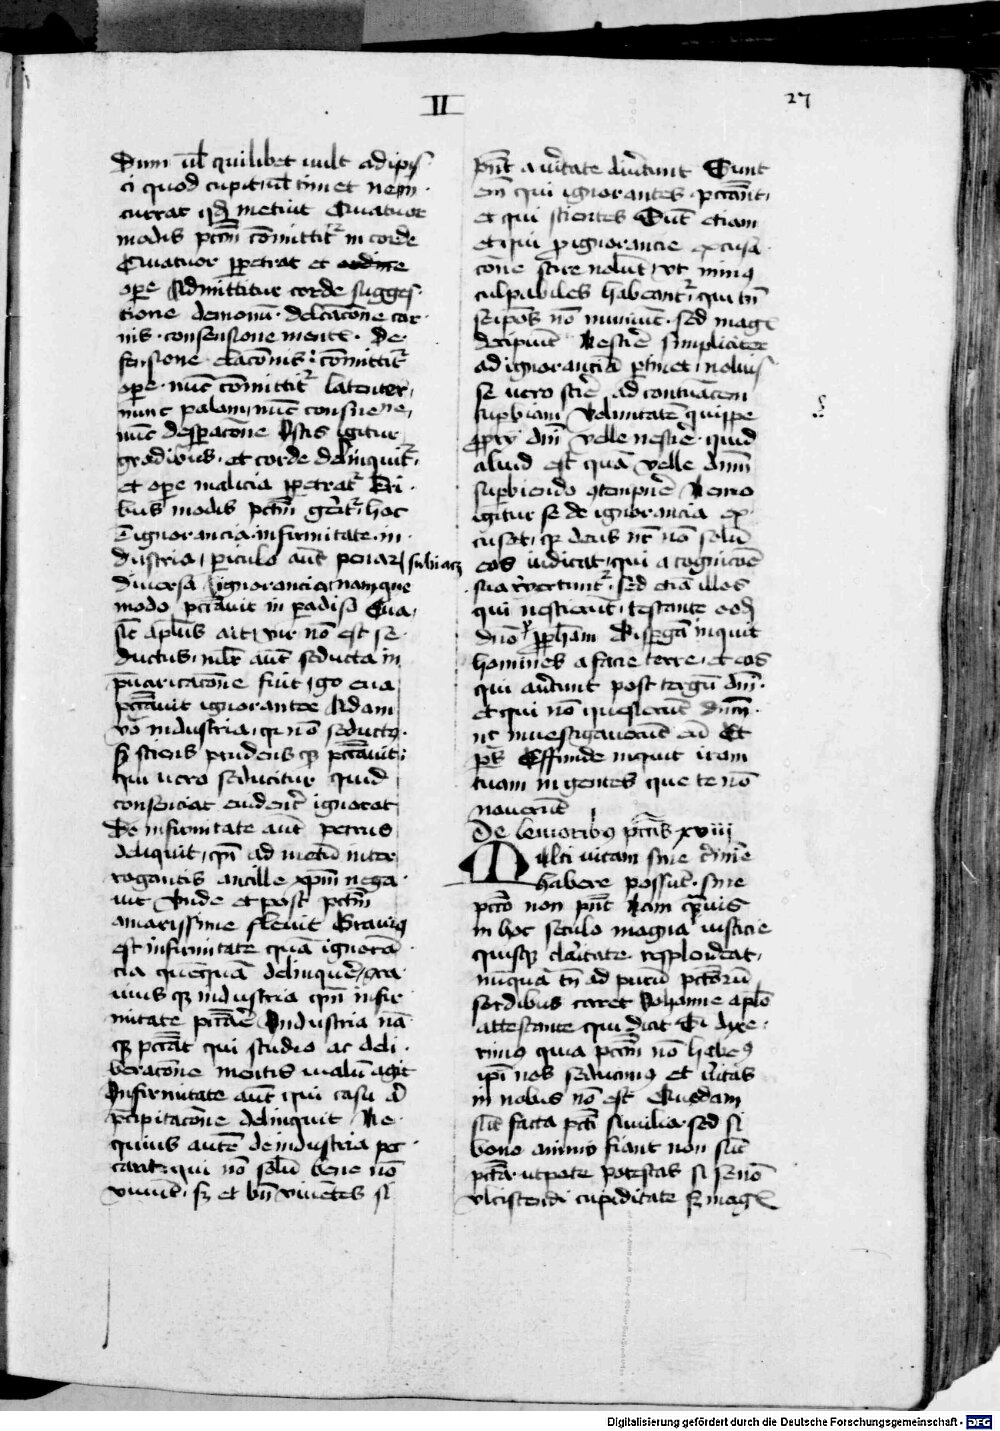 II
27
Dum ul quilibet uult adipis
ci quod cupit, ul timet ne in
currat qd metuit Quatuor
modis pctm comittit in corde
Quatuor perpetrat et ordine
ope Admittitur corde sugges
tione demonu· delcacone car
nis· consensione mentis· De
fensione elaconis· comittit
ope· nuc comittit latenter,
nunc palam, nuc consue ne,
nuc despacone Istis igitur
gradibus· et corde delinquit·
et ope malicia perpetrat Tri
bus modis pctm gerit hoc
e ignorancia· infirmitate· in
dustria, piculo aut penar subiacz
diuersa Ignorancia namque
modo pccauit in padiso Eua,
sic aplus ait, vir no est se
ductus, mlr aut seducta in
puaricacone fuit, go eua
pccauit ignorantee Adam
vo industria, q no seductus
sz sciens prudens qz pccauit,
qui uero seducitur quid
consenciat eudent ignorat
De infirmitate aut petrus
deliquit, qn ad metu inter
rogantis ancille xpm nega
uit Unde et post pctm
amarissime fleuit Grauius
est infirmitate qua ignoran
cia quequa delinquere, gra
uius qz industria qm infir
mitate pccare Industria na
qz pccat qui studio ac deli
beracone mentis malu agit
Infirmitate aut qui casu ul
pcipitacone delinquit Ne
quius aute de industria pec
cant, qui no solu bene no
viuut, sz et bn viuetes si
pnt a uitate diutunt Sunt
em qui ignorantes· pccant,
et qui scientes Sut etiam
et qui p ignorancie excusa
cone scire nolut, vt minus
culpabiles habeant, qui tn
seipos no muniut· sed magis
decipiut Nescire simpliciter
ad ignorancia ptinet, noluis
se uero scire ad contuacem
supbiam Voluntate quippe
pprii dni velle nescire quid
aliud est qua velle dnm
supbiendo contempne Nemo
igitur se de ignorancia ex
cuset, qz deus nr no solu
eos iudicat, qui a cognicoe
sua reuertunt, sed etia illos
qui nescierut, testante eod
dno p pphetam Dispgam inquit
homines a facie terre, et eos
qui auertunt post tergu dni·
et qui no quesierut dnm·
nr inuestigauerut eu Et
ps Effunde inquit iram
tuam in gentes que te no
nouerut
De leuioribus pctis xviii
Multi uitam sine crimine
habere possut· sine
pcco non pnt Nam quis
in hoc seculo magna iusticie
quisqz claritate resplendeat,
nuqua tn ad puru pctoru
sordibus caret Iohanne aplo
attestante qui dicit Si dixe
rimus quia pctm no habemus
ipi nos seducimus et ueritas
in nobis no est Quedam
sut facta pcti similia· sed si
bono animo fiant non sut
pctа utpote potestas si se no
vlciscendi cupiditate sz magis